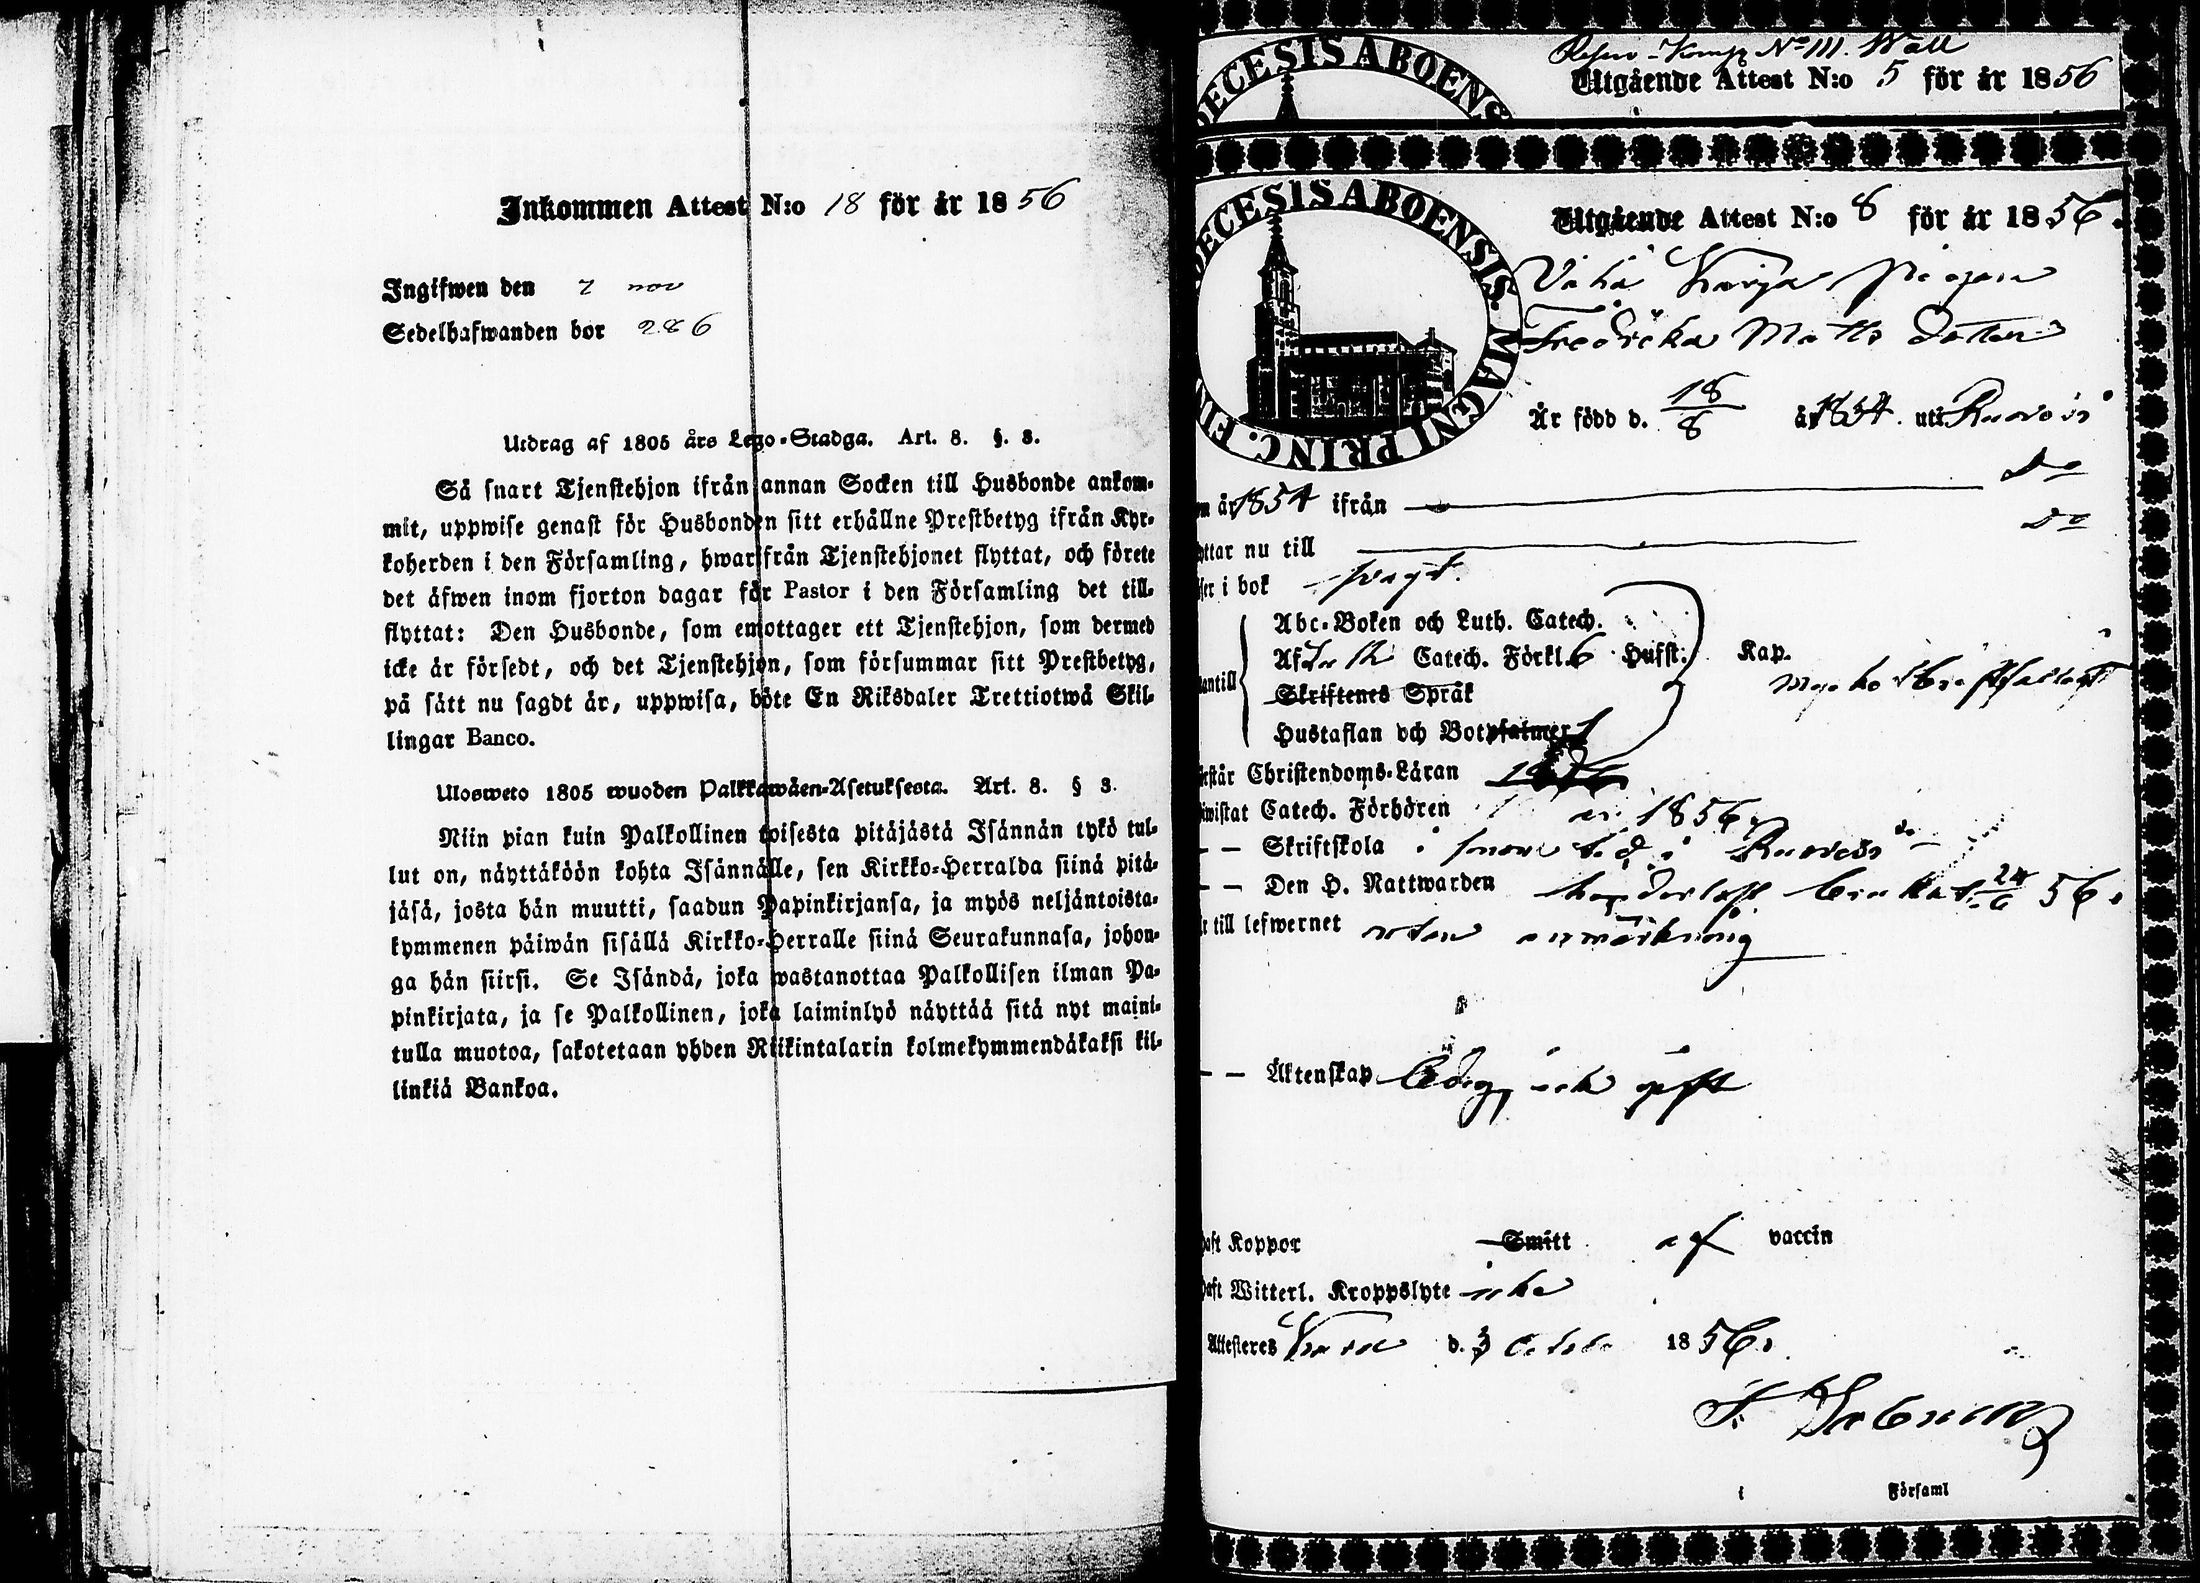 Inkommen Attest N:o 18 för år 1856
Ingifwen den 7 nov
Sedelhafwanden bor 286
Utdrag af 1805 års Lego-Stadga. Art. 8. §. 3.
Så snart Tjenstehjon ifrån annan Socken till Husbonde ankom-
mit, uppwise genast för Husbonden sitt erhållne Prestbetyg ifrån Kyr-
koherden i den Församling, hwarifrån Tjenstehjonet flyttat, och förete
det äfwen inom fjorton dagar för Pastor i den Församling det till-
flyttat: Den Husbonde, som emottager ett Tjenstehjon, som dermed
icke är försedt, och det Tjenstehjon, som försummar sitt Prestbetyg,
på sätt nu sagdt är, uppwisa, böte En Riksdaler Trettiotwå Skil-
lingar Banco.
Ulosweto 1805 wuoden Palkkawäen-Asetuksesta. Art. 8. § 3.
Niin pian kuin Palkollinen toisesta pitäjästä Isännän tykö tul-
lut on, näyttäköön kohta Isännälle, sen Kirkko-Herralda siinä pitä-
jäsä, josta hän muutti, saadun Papinkirjansa, ja myös neljäntoista-
kymmenen päiwän sisällä Kirkko-Herralle siinä Seurakunnasa, johon-
ga hän siirsi. Se Isändä, joka wastanottaa Palkollisen ilman Pa-
pinkirjata, ja se Palkollinen, joka laiminlyö näyttää sitä nyt maini-
tulla muotoa, sakotetaan yhden Riikintalarin kolmekymmendäkaksi kil-
linkiä Bankoa.
DECESIS ABOENS
Reserv-Komp N:o III. Wall
Utgående Attest N:o 5 för år 1856
DECESIS ABOENSIS. MAGNI PRINC. FIN
Utgående Attest N:o 8 för år 1856.
Vähä Pigan
Fredrika Matts dotter
Är född d. 18/8 år 1834. uti Ruovesi
m år 1854 ifrån Do
yttar nu till Do
ser i bok svagt.
antill
Abc-Boken och Luth. Catech.
Af Luth Catech. Förkl. 6 Hufst: Kap.
Skriftenes Språk
Hustaflan och Botpsalmer
rstår Christendoms-Läran
iwistat Catech. Förhören 1856.
— — Skriftskola i sinom tid i Ruovesi
— — Den H. Nattwarden har derlast brukat 24/6 56.
r till lefwernet utan anmärkning
— — Äktenskap ledig, och gift
haft Koppor Smitt af vaccin
haft Witterl. Kroppslyte icke
Attesteres d. 3 Octob 1856.
i Församl